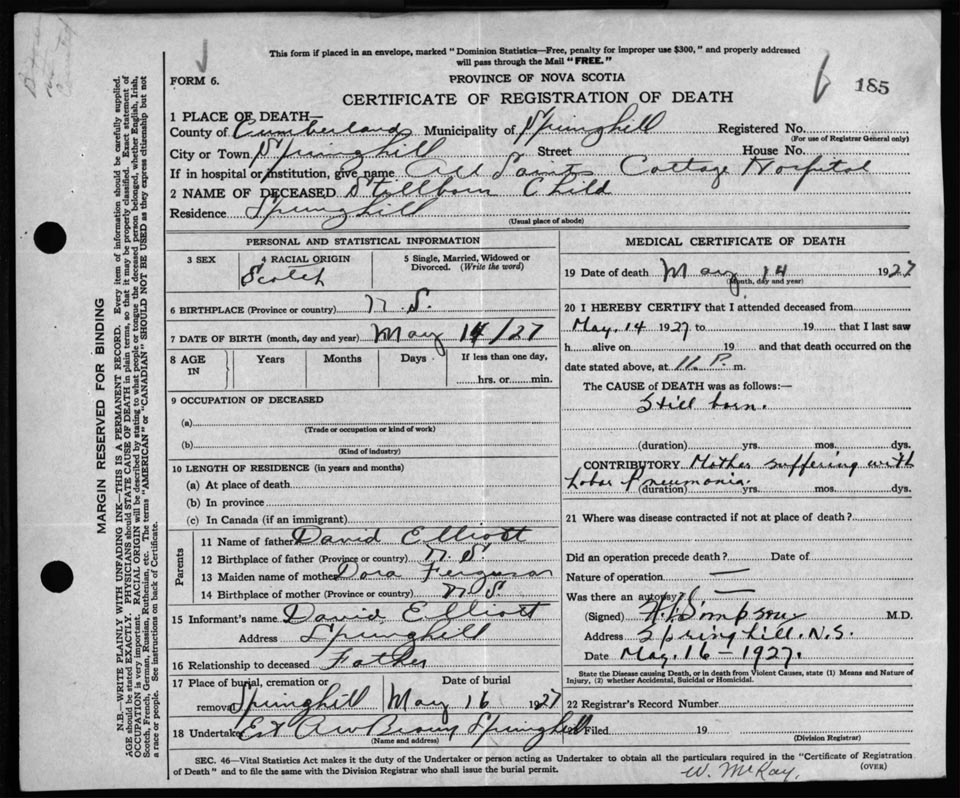 This form if placed in an envelope, marked "Dominion Statistics—Free, penalty for improper use $300," and properly addressed
will pass through the Mail "FREE."
FORM 6.
PROVINCE OF NOVA SCOTIA
185
CERTIFICATE OF REGISTRATION OF DEATH
1 PLACE OF DEATH—
County of Cumberland Municipality of Springhill Registered No.
(For use of Registrar General only)
City or Town Springhill Street House No.
If in hospital or institution, give name All Saints Cottage Hospital
2 NAME OF DECEASED Stillborn Child
Residence Springhill
(Usual place of abode)
PERSONAL AND STATISTICAL INFORMATION
3 SEX
4 RACIAL ORIGIN
Scotch
5 Single, Married, Widowed or
Divorced. (Write the word)
6 BIRTHPLACE (Province or country) N.S.
7 DATE OF BIRTH (month, day and year) May 14/27
8 AGE IN
Years Months Days If less than one day,
hrs. or min.
9 OCCUPATION OF DECEASED
(a)
(Trade or occupation or kind of work)
(b)
(Kind of industry)
10 LENGTH OF RESIDENCE (in years and months)
(a) At place of death
(b) In province
(c) In Canada (if an immigrant)
Parents
11 Name of father David Elliott
12 Birthplace of father (Province or country) N.S.
13 Maiden name of mother Dora Ferguson
14 Birthplace of mother (Province or country) N.S.
15 Informant's name David Elliott
Address Springhill
16 Relationship to deceased Father
17 Place of burial, cremation or Date of burial
removal Springhill May 16 1927
18 Undertaker Springhill
(Name and address)
MEDICAL CERTIFICATE OF DEATH
19 Date of death May 14 1927
(Month, day and year)
20 I HEREBY CERTIFY that I attended deceased from
May. 14 1927 to 19 that I last saw
h alive on 19 and that death occurred on the
date stated above, at 11. P. m.
The CAUSE of DEATH was as follows:—
Still born.
(duration) yrs. mos. dys.
CONTRIBUTORY Mother suffering with
Lobar Pneumonia.
(duration) yrs. mos. dys.
21 Where was disease contracted if not at place of death?
Did an operation precede death? Date of
Nature of operation —
Was there an autopsy? —
(Signed) M.D.
Address Springhill. N.S.
Date May. 16 - 1927.
State the Disease causing Death, or in death from Violent Causes, state (1) Means and Nature of
Injury, (2) whether Accidental, Suicidal or Homicidal.
22 Registrar's Record Number
Filed 19
(Division Registrar)
SEC. 46—Vital Statistics Act makes it the duty of the Undertaker or person acting as Undertaker to obtain all the particulars required in the "Certificate of Registration
of Death" and to file the same with the Division Registrar who shall issue the burial permit.
(OVER)
W. McKay.
MARGIN RESERVED FOR BINDING
N.B.—WRITE PLAINLY WITH UNFADING INK—THIS IS A PERMANENT RECORD. Every item of information should be carefully supplied.
AGE should be stated EXACTLY. PHYSICIANS should STATE CAUSE OF DEATH in plain terms, so that it may be properly classified. Exact statement of
OCCUPATION is very important. RACIAL ORIGIN will be described by stating to what people or tongue the deceased person belonged, whether English, Irish,
Scotch, French, German, Russian, Ruthenian, etc. The terms "AMERICAN" or "CANADIAN" SHOULD NOT BE USED as they express citizenship but not
a race or people. See instructions on back of Certificate.